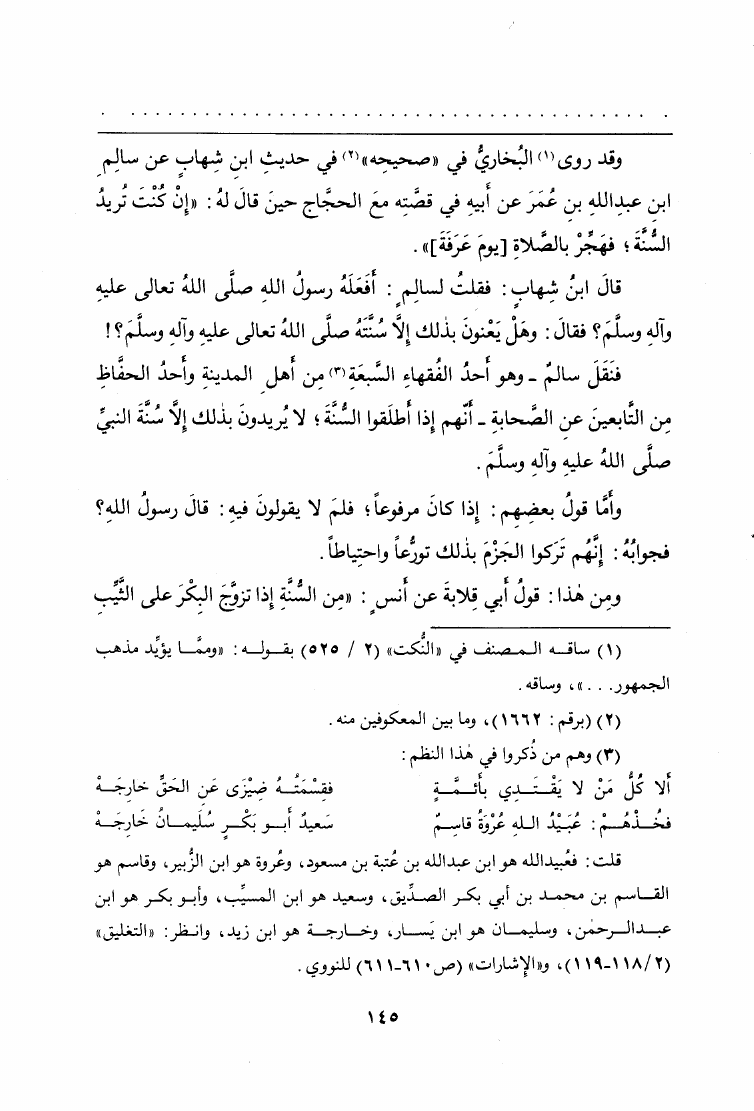 وقد روى(١) البُخاريُّ في «صحيحِه»(٢) في حديثِ ابنِ شِهابٍ عن سالِمِ
ابن عبدِاللهِ بن عُمَرَ عن أَبيه في قصَّتِه معَ الحجَّاج حينَ قالَ لهُ: «إِنْ كُنْتَ تُريدُ
السُّنَّةَ؛ فهَجِّرْ بالصَّلاةِ [يومَ عَرَفَةَ]».
قالَ ابنُ شِهابٍ: فقلتُ لسالِمٍ: أَفَعَلَهُ رسولُ اللهِ صلَّى اللهُ تعالى عليهِ
وآله وسلَّمَ؟ فقالَ: وهَلْ يَعْنونَ بذلك إِلَّا سُنَّتَهُ صلَّى اللهُ تعالى عليهِ وآلهِ وسلَّمَ؟!
فنَقَلَ سالمٌ ـ وهو أَحدُ الفُقهاءِ السَّبعَةِ(٣) مِن أَهلِ المدينةِ وأَحدُ الحفَّاظِ
مِن التَّابعينَ عن الصَّحابةِ ـ أَنَّهم إِذا أَطلَقوا السُّنَّةَ؛ لا يُريدونَ بذلك إِلَّا سُنَّةَ النبيِّ
صلَّى اللهُ عليهِ وآلهِ وسلَّمَ.
وأَمَّا قولُ بعضِهِم: إِذا كانَ مرفوعاً؛ فلمَ لا يقولونَ فيهِ: قالَ رسولُ اللهِ؟
فجوابُهُ: إِنَّهُم تَركوا الجَزْمَ بذلك تورُّعاً واحتِياطاً.
ومِن هٰذا: قولُ أَبي قِلابةَ عن أَنسٍ: «مِن السُّنَّةِ إِذا تزوَّجَ البِكْرَ على الثَّيِّبِ
(١) ساقه المصنف في «النُّكت» (٢ / ٥٢٥) بقوله: «وممَّا يؤيِّد مذهب
الجمهور. . . »، وساقه.
(٢) (برقم: ١٦٦٢)، وما بين المعكوفين منه.
(٣) وهم من ذُكروا في هٰذا النظم:
أَلا كُلُّ مَنْ لا يَقْتَدِي بأَئمَّةٍ فقِسْمَتُهُ ضِيْزَى عَنِ الحَقِّ خارِجَهْ
فخُذْهُمْ: عُبَيْدُ اللهِ عُرْوَةُ قاسِمٌ سَعيدٌ أَبو بَكْرٍ سُلَيمانُ خارِجَهْ
قلت: فعُبيدالله هو ابن عبدالله بن عُتبة بن مسعود، وعُروة هو ابن الزُّبير، وقاسم هو
القاسم بن محمد بن أبي بكر الصدِّيق، وسعيد هو ابن المسيِّب، وأبو بكر هو ابن
عبدالرحمٰن، وسليمان هو ابن يَسار، وخارجة هو ابن زيد، وانظر: «التغليق»
(٢/١١٨-١١٩)، و«الإشارات» (ص٦١٠-٦١١) للنووي.
١٤٥